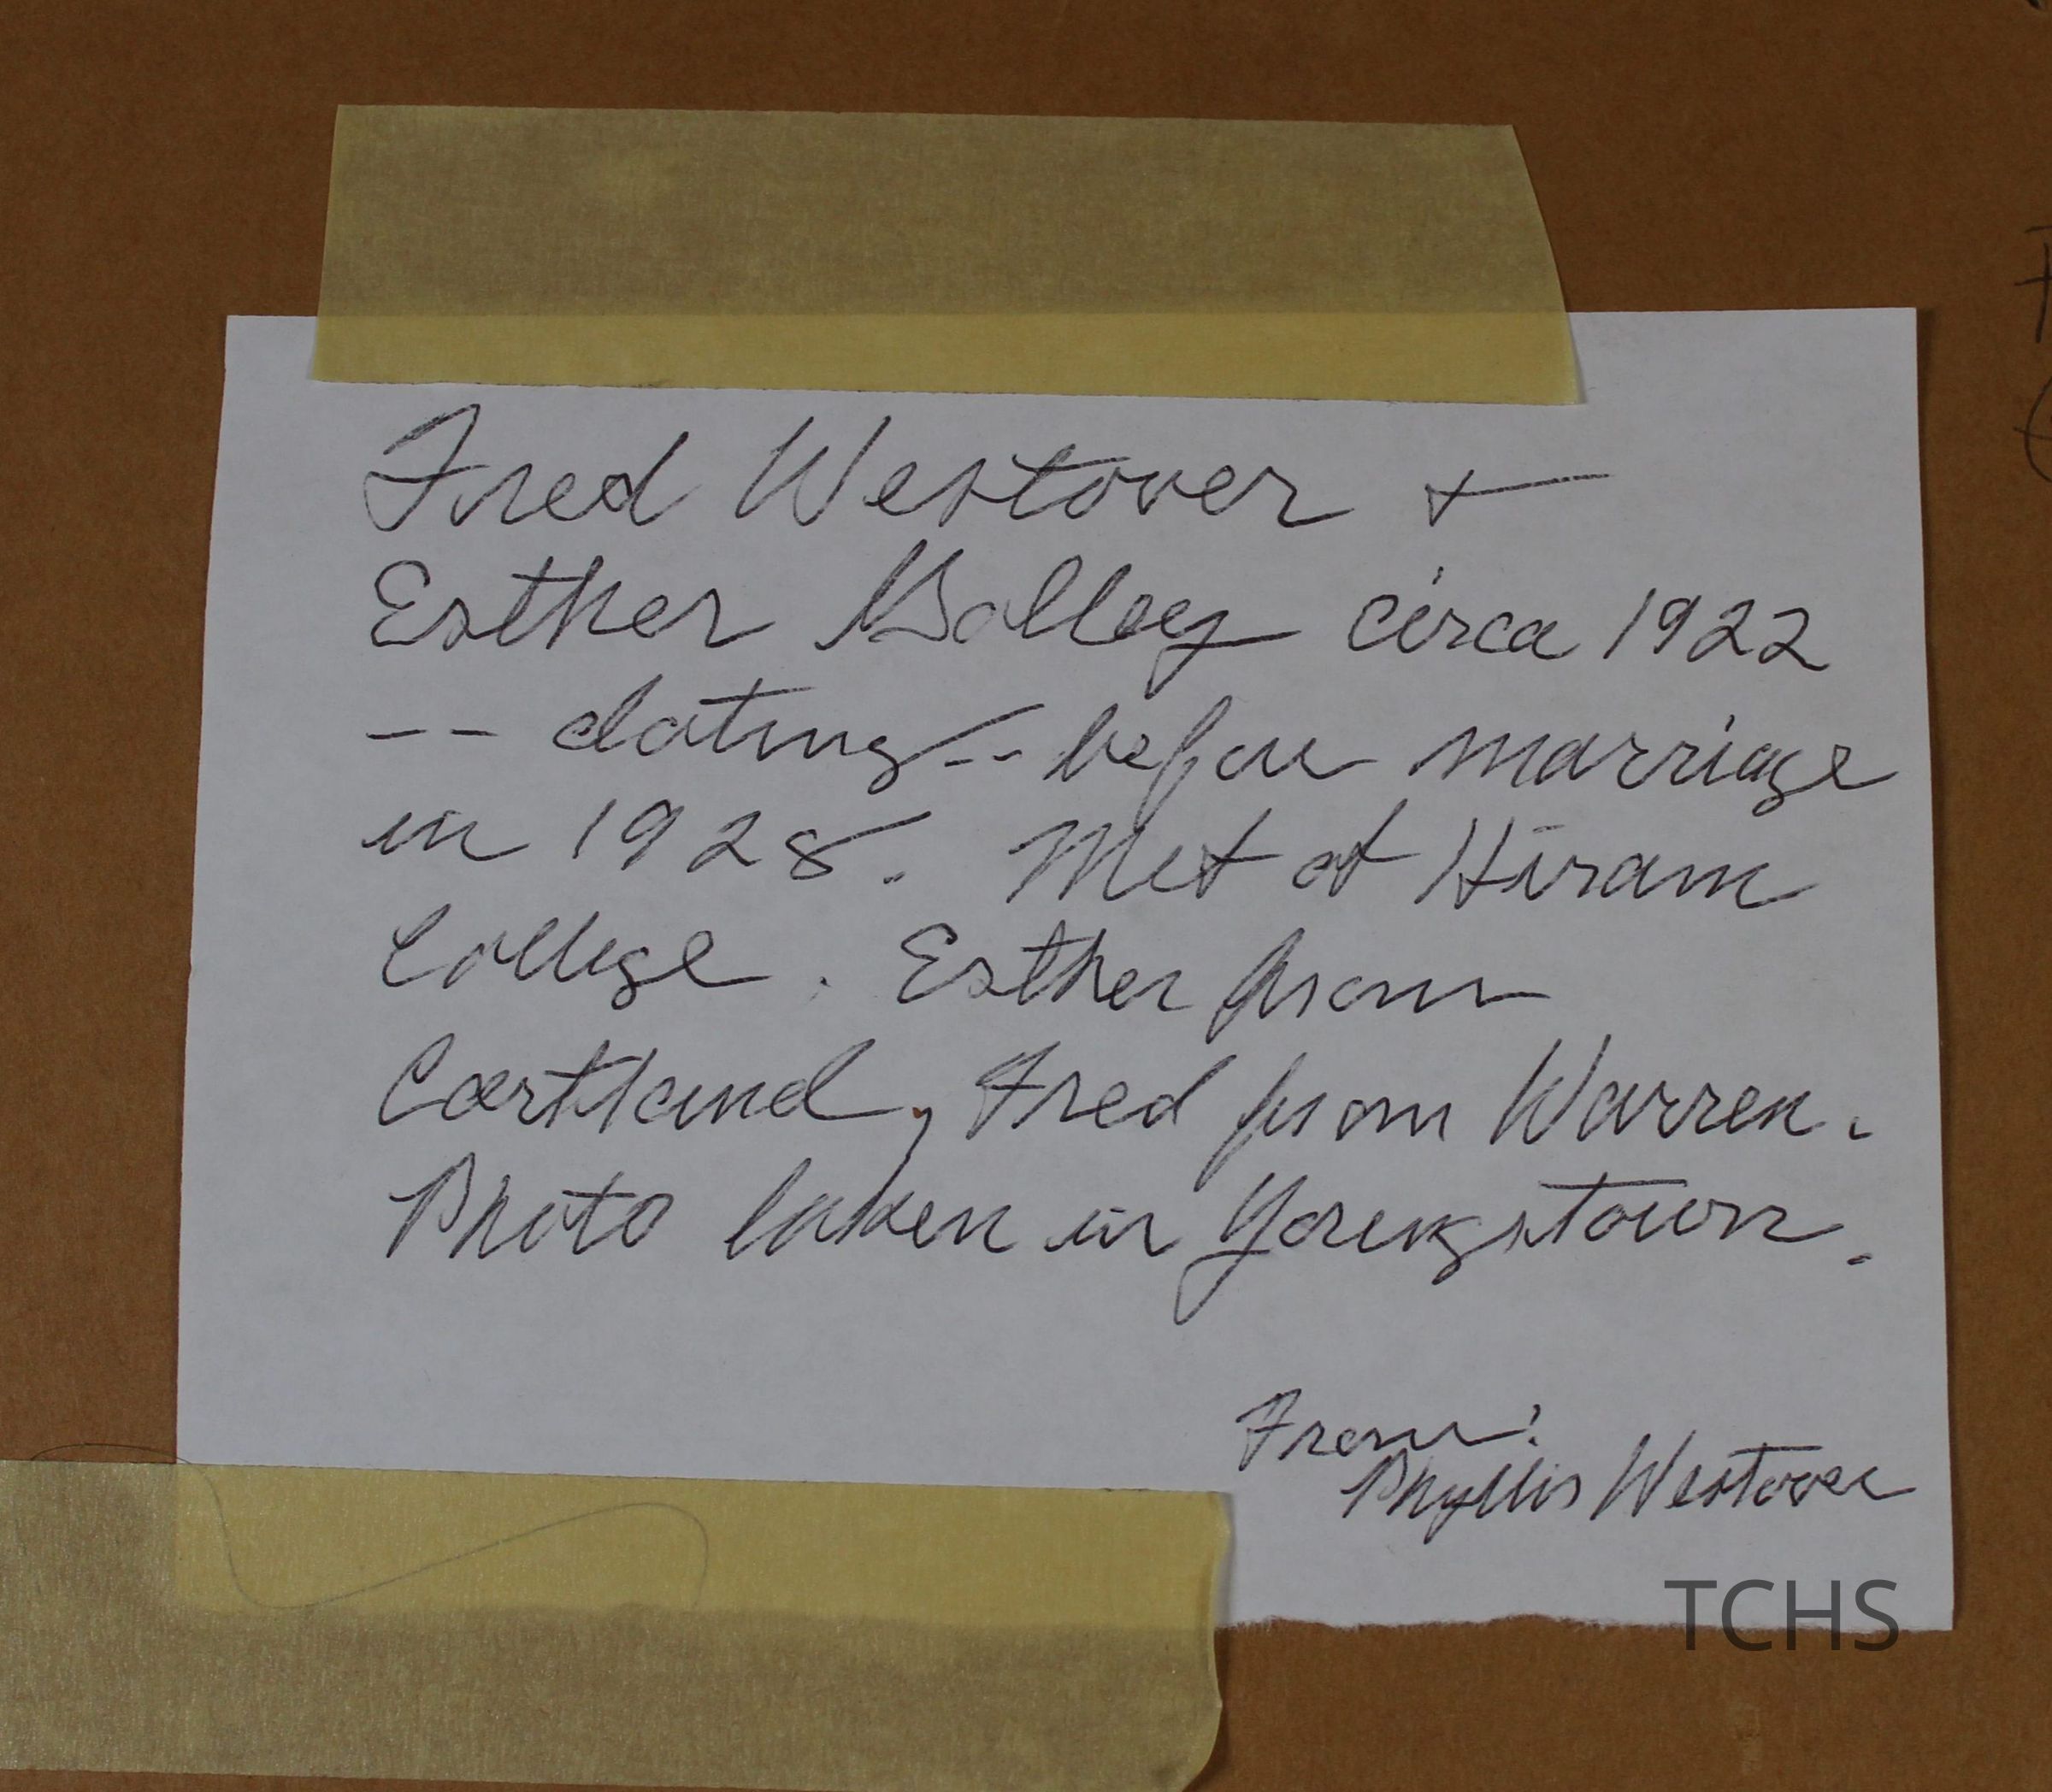 Fred Westover +
Esther circa 1922
-- dating -- before marriage
in 1928. Met at Hiram
College. Esther from
Cortland, Fred from Warren.
Photo taken in Youngstown.
From:
Phyllis Westover
TCHS